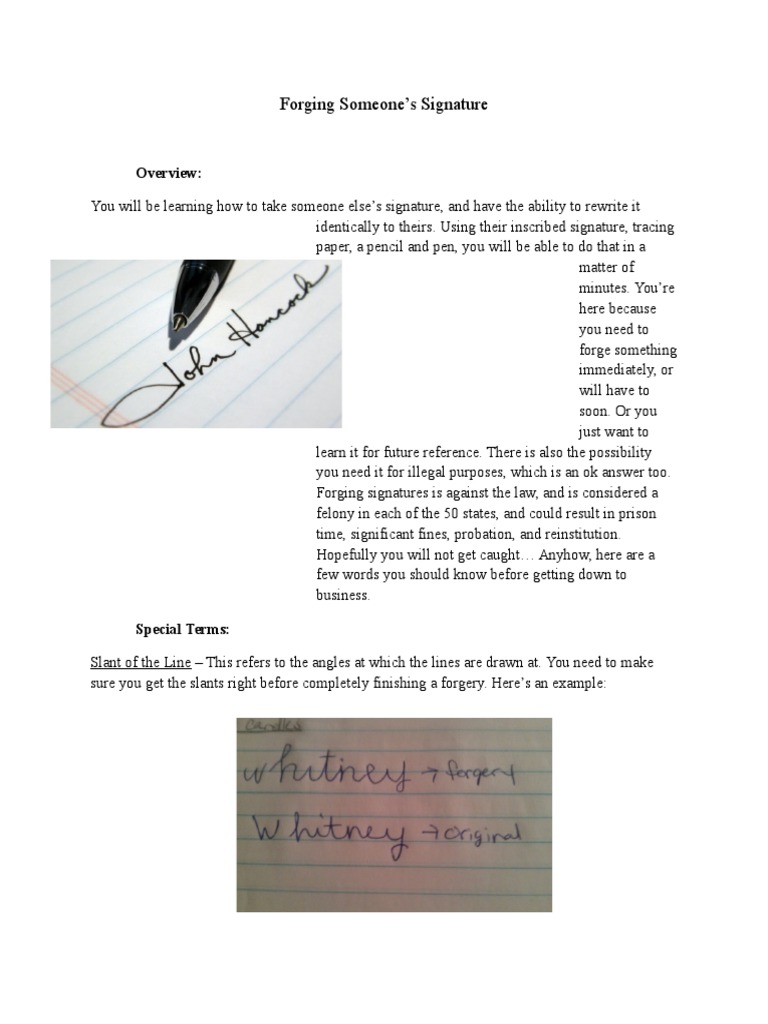 Forging Someone’s Signature
Overview:
You will be learning how to take someone else’s signature, and have the ability to rewrite it
identically to theirs. Using their inscribed signature, tracing
paper, a pencil and pen, you will be able to do that in a
matter of
minutes. You’re
here because
you need to
forge something
immediately, or
will have to
soon. Or you
just want to
learn it for future reference. There is also the possibility
you need it for illegal purposes, which is an ok answer too.
Forging signatures is against the law, and is considered a
felony in each of the 50 states, and could result in prison
time, significant fines, probation, and reinstitution.
Hopefully you will not get caught… Anyhow, here are a
few words you should know before getting down to
business.
John Hancock
Special Terms:
Slant of the Line – This refers to the angles at which the lines are drawn at. You need to make
sure you get the slants right before completely finishing a forgery. Here’s an example:
candles
whitney → forgery
Whitney → original